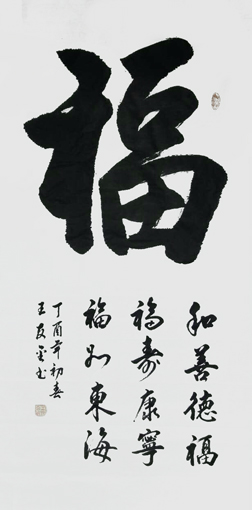 福
和善德福
福寿康寧
福如東海
丁酉年初春
王友云书